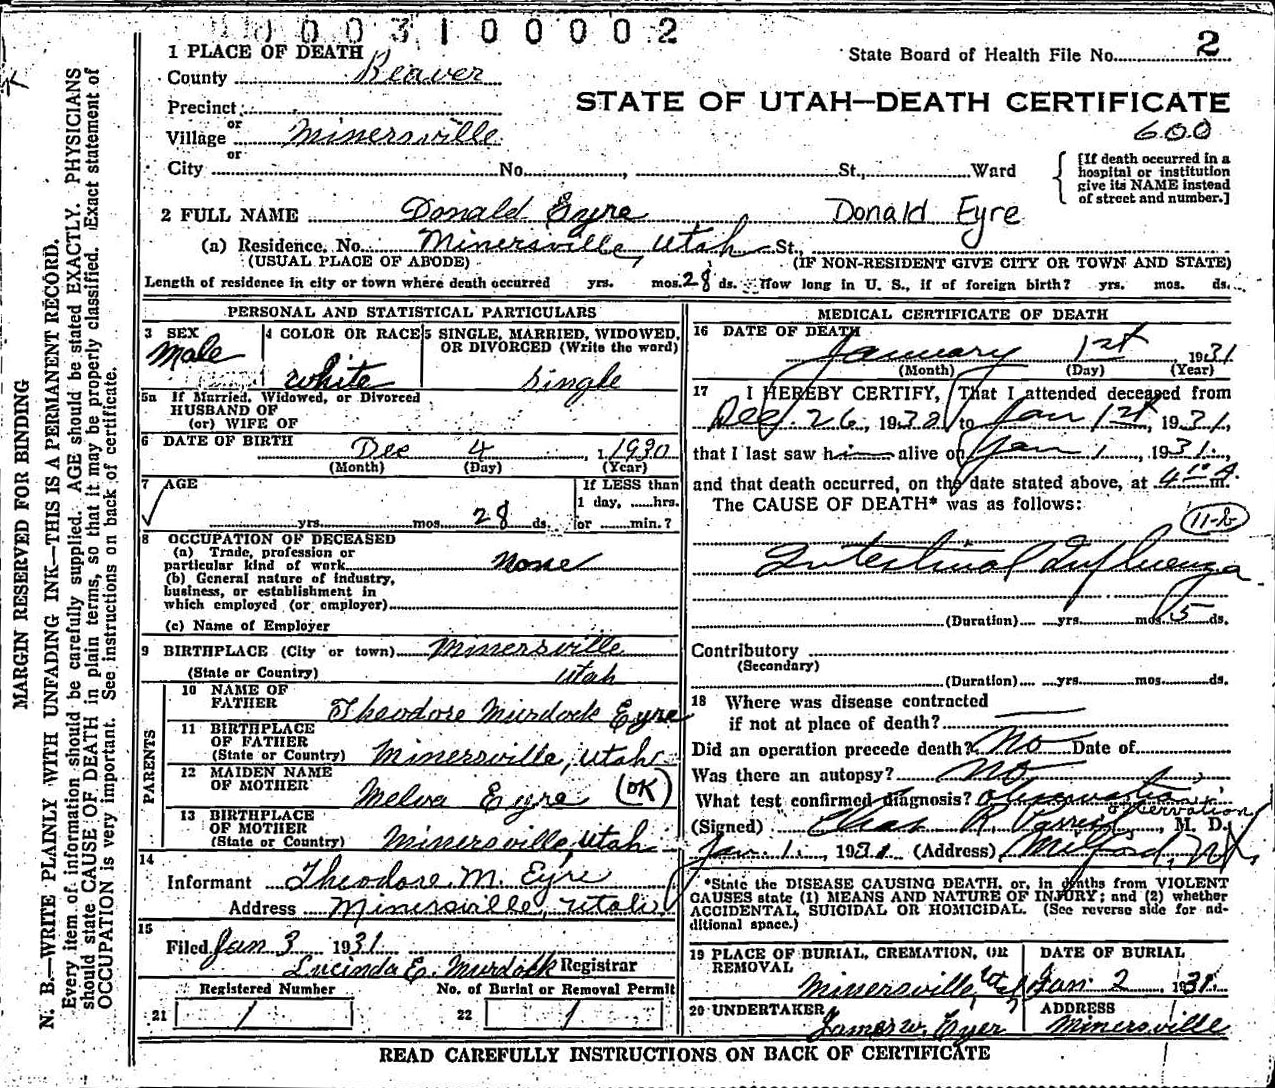 0003100002
1 PLACE OF DEATH
County Beaver
State Board of Health File No. 2
Precinct
STATE OF UTAH—DEATH CERTIFICATE
or
Village Minersville
600
or
City No. , St., Ward
[If death occurred in a
hospital or institution
give its NAME instead
of street and number.]
2 FULL NAME Donald Eyre Donald Eyre
(a) Residence. No. Minersville, Utah St.,
(USUAL PLACE OF ABODE) (IF NON-RESIDENT GIVE CITY OR TOWN AND STATE)
Length of residence in city or town where death occurred yrs. mos. 28 ds. How long in U. S., if of foreign birth? yrs. mos. ds.
PERSONAL AND STATISTICAL PARTICULARS
3 SEX
Male
4 COLOR OR RACE
white
5 SINGLE, MARRIED, WIDOWED,
OR DIVORCED (Write the word)
Single
5a If Married, Widowed, or Divorced
HUSBAND OF
(or) WIFE OF
6 DATE OF BIRTH Dec 4, 1930
(Month) (Day) (Year)
7 AGE
yrs. mos. 28 ds.
If LESS than
1 day, hrs.
or min.?
8 OCCUPATION OF DECEASED
(a) Trade, profession or
particular kind of work None
(b) General nature of industry,
business, or establishment in
which employed (or employer)
(c) Name of Employer
9 BIRTHPLACE (City or town) Minersville
(State or Country) Utah
PARENTS
10 NAME OF
FATHER Theodore Murdock Eyre
11 BIRTHPLACE
OF FATHER
(State or Country) Minersville, Utah
12 MAIDEN NAME
OF MOTHER Melva Eyre (OK)
13 BIRTHPLACE
OF MOTHER
(State or Country) Minersville, Utah
14
Informant Theodore M. Eyre
Address Minersville, Utah
15
Filed Jan 3 1931
Lucinda E. Murdock Registrar
Registered Number No. of Burial or Removal Permit
21 1 22 1
MEDICAL CERTIFICATE OF DEATH
16 DATE OF DEATH
January 1st, 1931
(Month) (Day) (Year)
17 I HEREBY CERTIFY, That I attended deceased from
Dec. 26, 1930 to Jan 1st, 1931,
that I last saw him alive on Jan 1, 1931,
and that death occurred, on the date stated above, at 4 A m.
The CAUSE OF DEATH* was as follows:
11-b
Intestinal Influenza
(Duration) yrs. mos. 5 ds.
Contributory
(Secondary)
(Duration) yrs. mos. ds.
18 Where was disease contracted
if not at place of death?
Did an operation precede death? No Date of
Was there an autopsy? No
What test confirmed diagnosis? Observation
observation
(Signed) Chas R. , M. D.
Jan. 1, 1931 (Address) Milford, Ut.
*State the DISEASE CAUSING DEATH, or, in deaths from VIOLENT
CAUSES state (1) MEANS AND NATURE OF INJURY; and (2) whether
ACCIDENTAL, SUICIDAL OR HOMICIDAL. (See reverse side for ad-
ditional space.)
19 PLACE OF BURIAL, CREMATION, OR
REMOVAL
Minersville, Utah
DATE OF BURIAL
Jan 2 1931
20 UNDERTAKER
James W. Eyer
ADDRESS
Minersville
READ CAREFULLY INSTRUCTIONS ON BACK OF CERTIFICATE
MARGIN RESERVED FOR BINDING
N. B.—WRITE PLAINLY WITH UNFADING INK—THIS IS A PERMANENT RECORD.
Every item of information should be carefully supplied. AGE should be stated EXACTLY. PHYSICIANS
should state CAUSE OF DEATH in plain terms, so that it may be properly classified. Exact statement of
OCCUPATION is very important. See instructions on back of certificate.